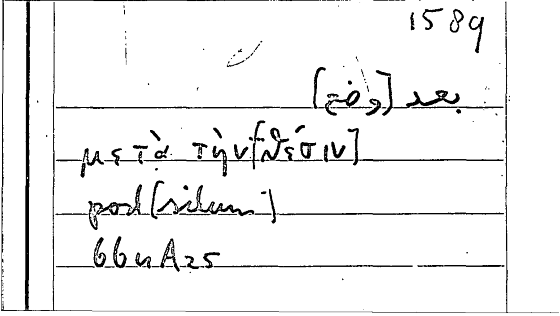 1589
بعد [وضع]
μετὰ τὴν [θέσιν]
post [situm]
664A25